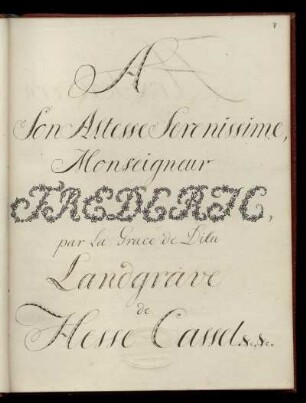 A
Son Altesse Serenissime,
Monseigneur
FREDERIC,
par la Grace de Dieu
Landgrave
de
Hesse Cassel &c. &c.